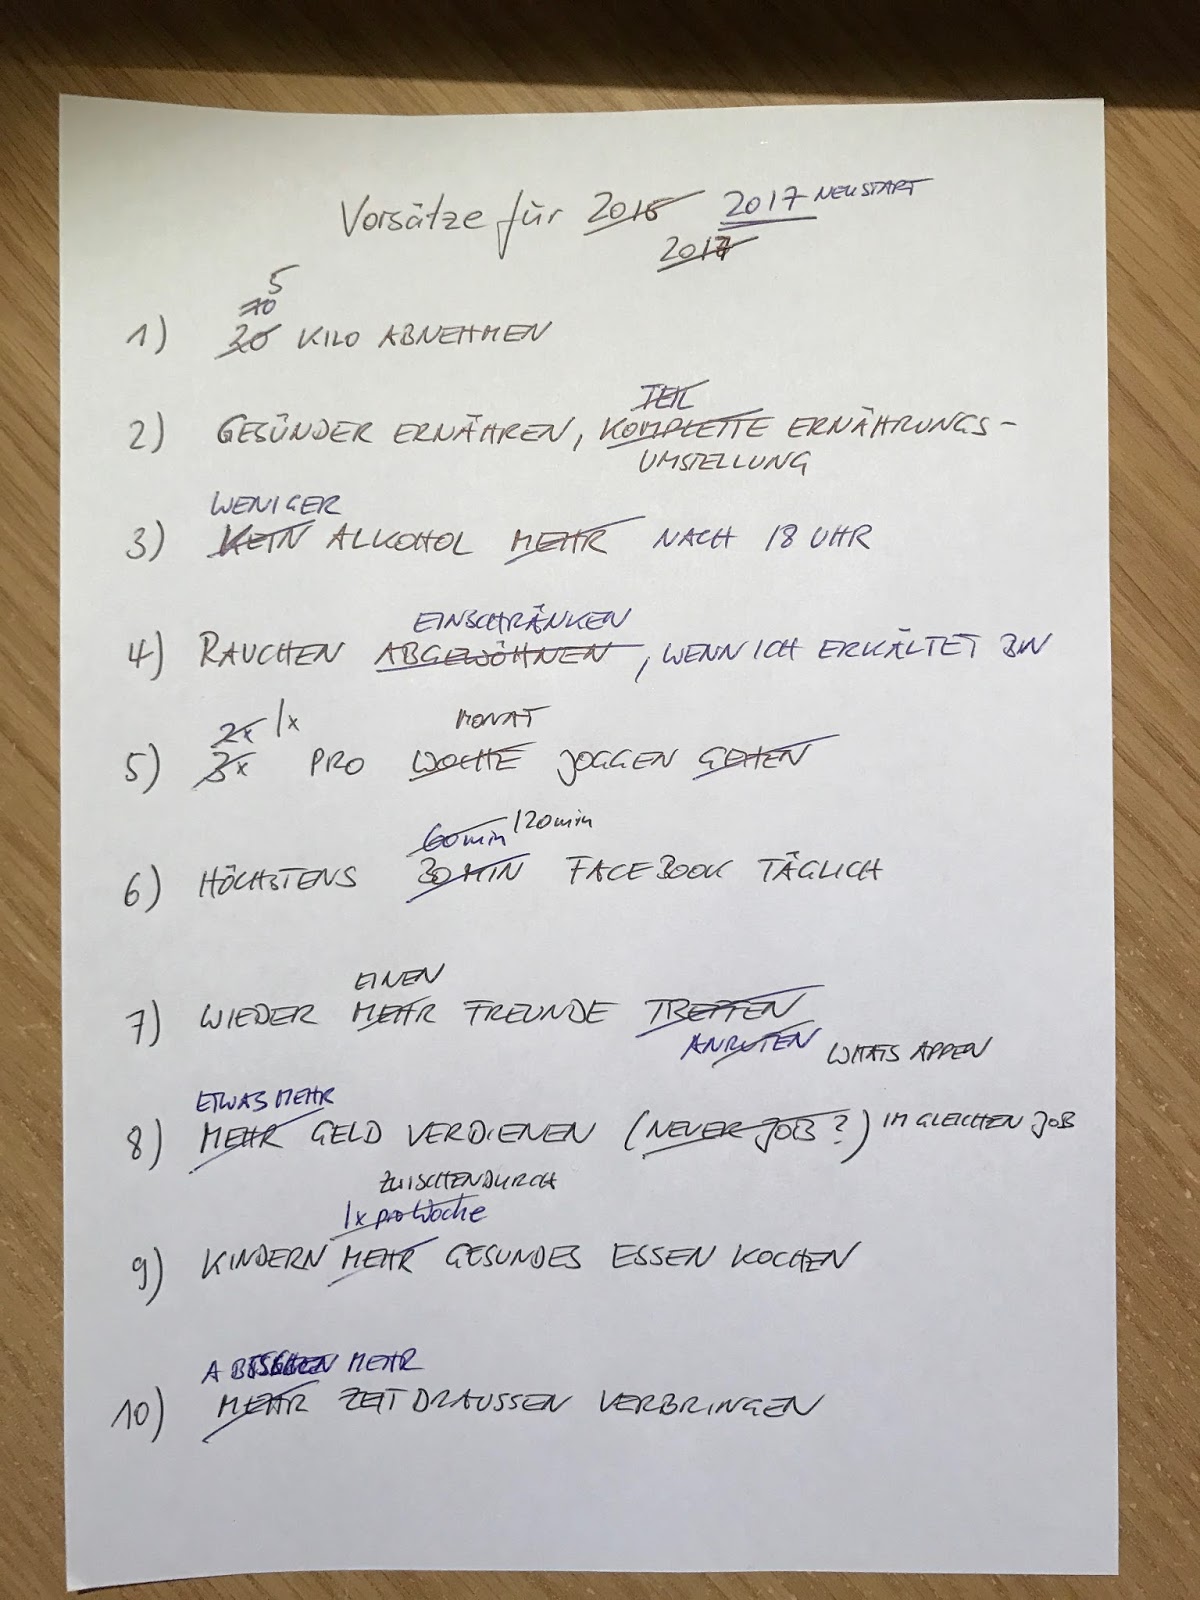 Vorsätze für 2016 2017 NEUSTART
2017
5
10
1) 20 KILO ABNEHMEN
TEIL
2) GESÜNDER ERNÄHREN, KOMPLETTE ERNÄHRUNGS-
UMSTELLUNG
WENIGER
3) KEIN ALKOHOL MEHR NACH 18 UHR
EINSCHRÄNKEN
4) RAUCHEN ABGEWÖHNEN, WENN ICH ERKÄLTET BIN
2x 1x MONAT
5) 3x PRO WOCHE JOGGEN GEHEN
60min 120min
6) HÖCHSTENS 30 MIN FACEBOOK TÄGLICH
EINEN
7) WIEDER MEHR FREUNDE TREFFEN
ANRUFEN WHATS APPEN
ETWAS MEHR
8) MEHR GELD VERDIENEN (NEUER JOB?) IM GLEICHEN JOB
ZWISCHENDURCH
1x pro Woche
9) KINDERN MEHR GESUNDES ESSEN KOCHEN
A MEHR
10) MEHR ZEIT DRAUSSEN VERBRINGEN